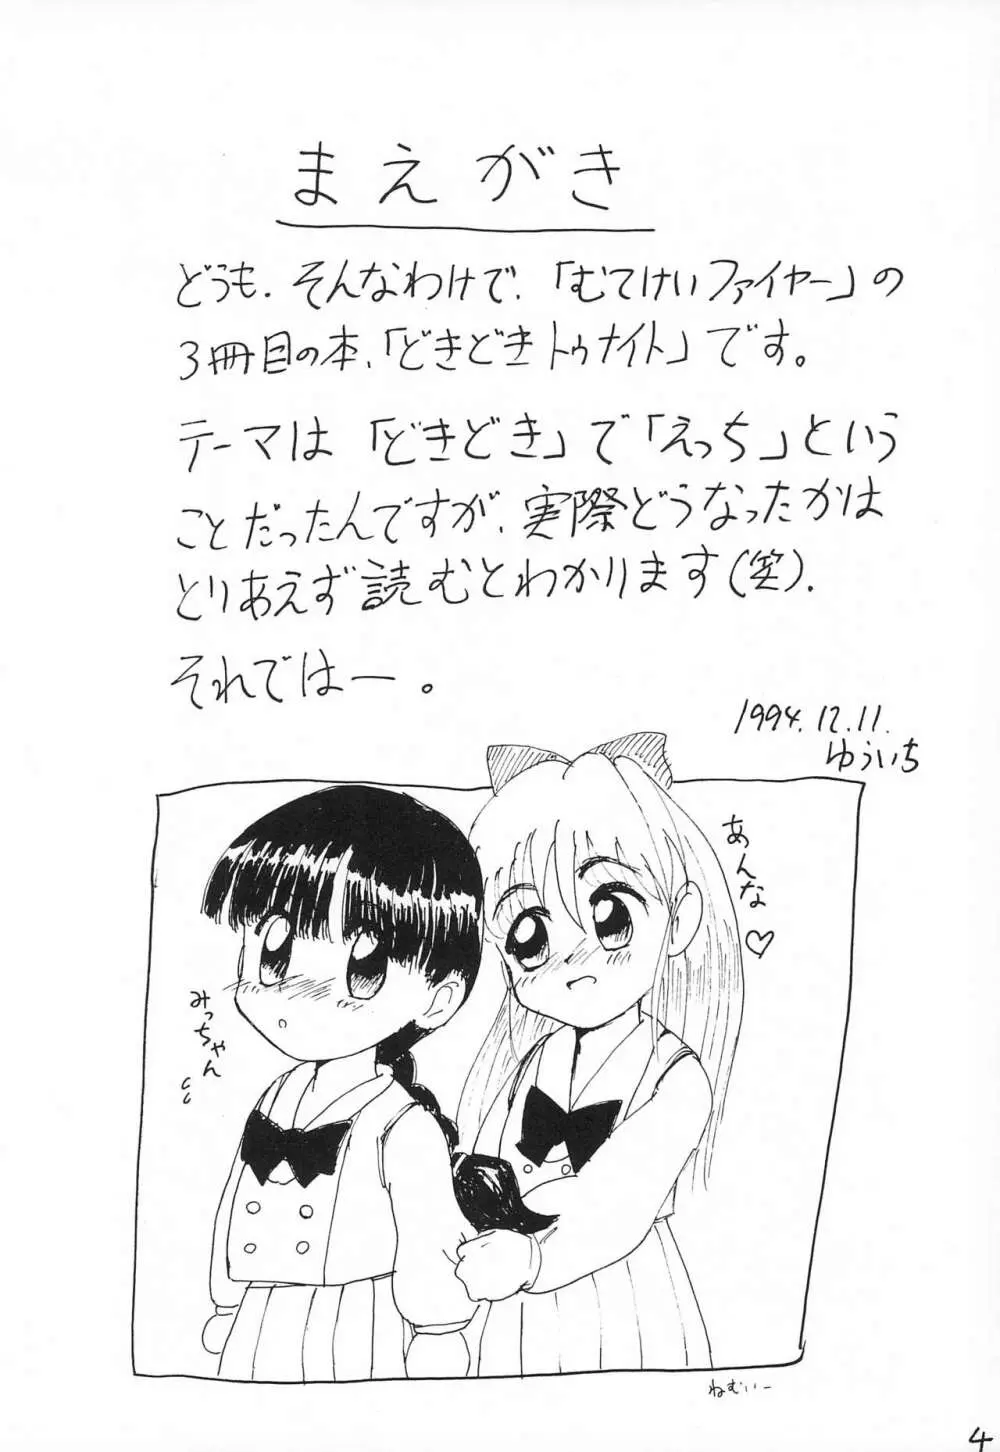 まえがき
どうも．そんなわけで、「むてけいファイヤー」の
3冊目の本、「どきどきトゥナイト」です。
テーマは「どきどき」で「えっち」という
ことだったんですが、実際どうなったかは
とりあえず読むとわかります(笑)．
それではー。
1994.12.11.
ゆういち
あんな♡
みっちゃん
ねむいー
4